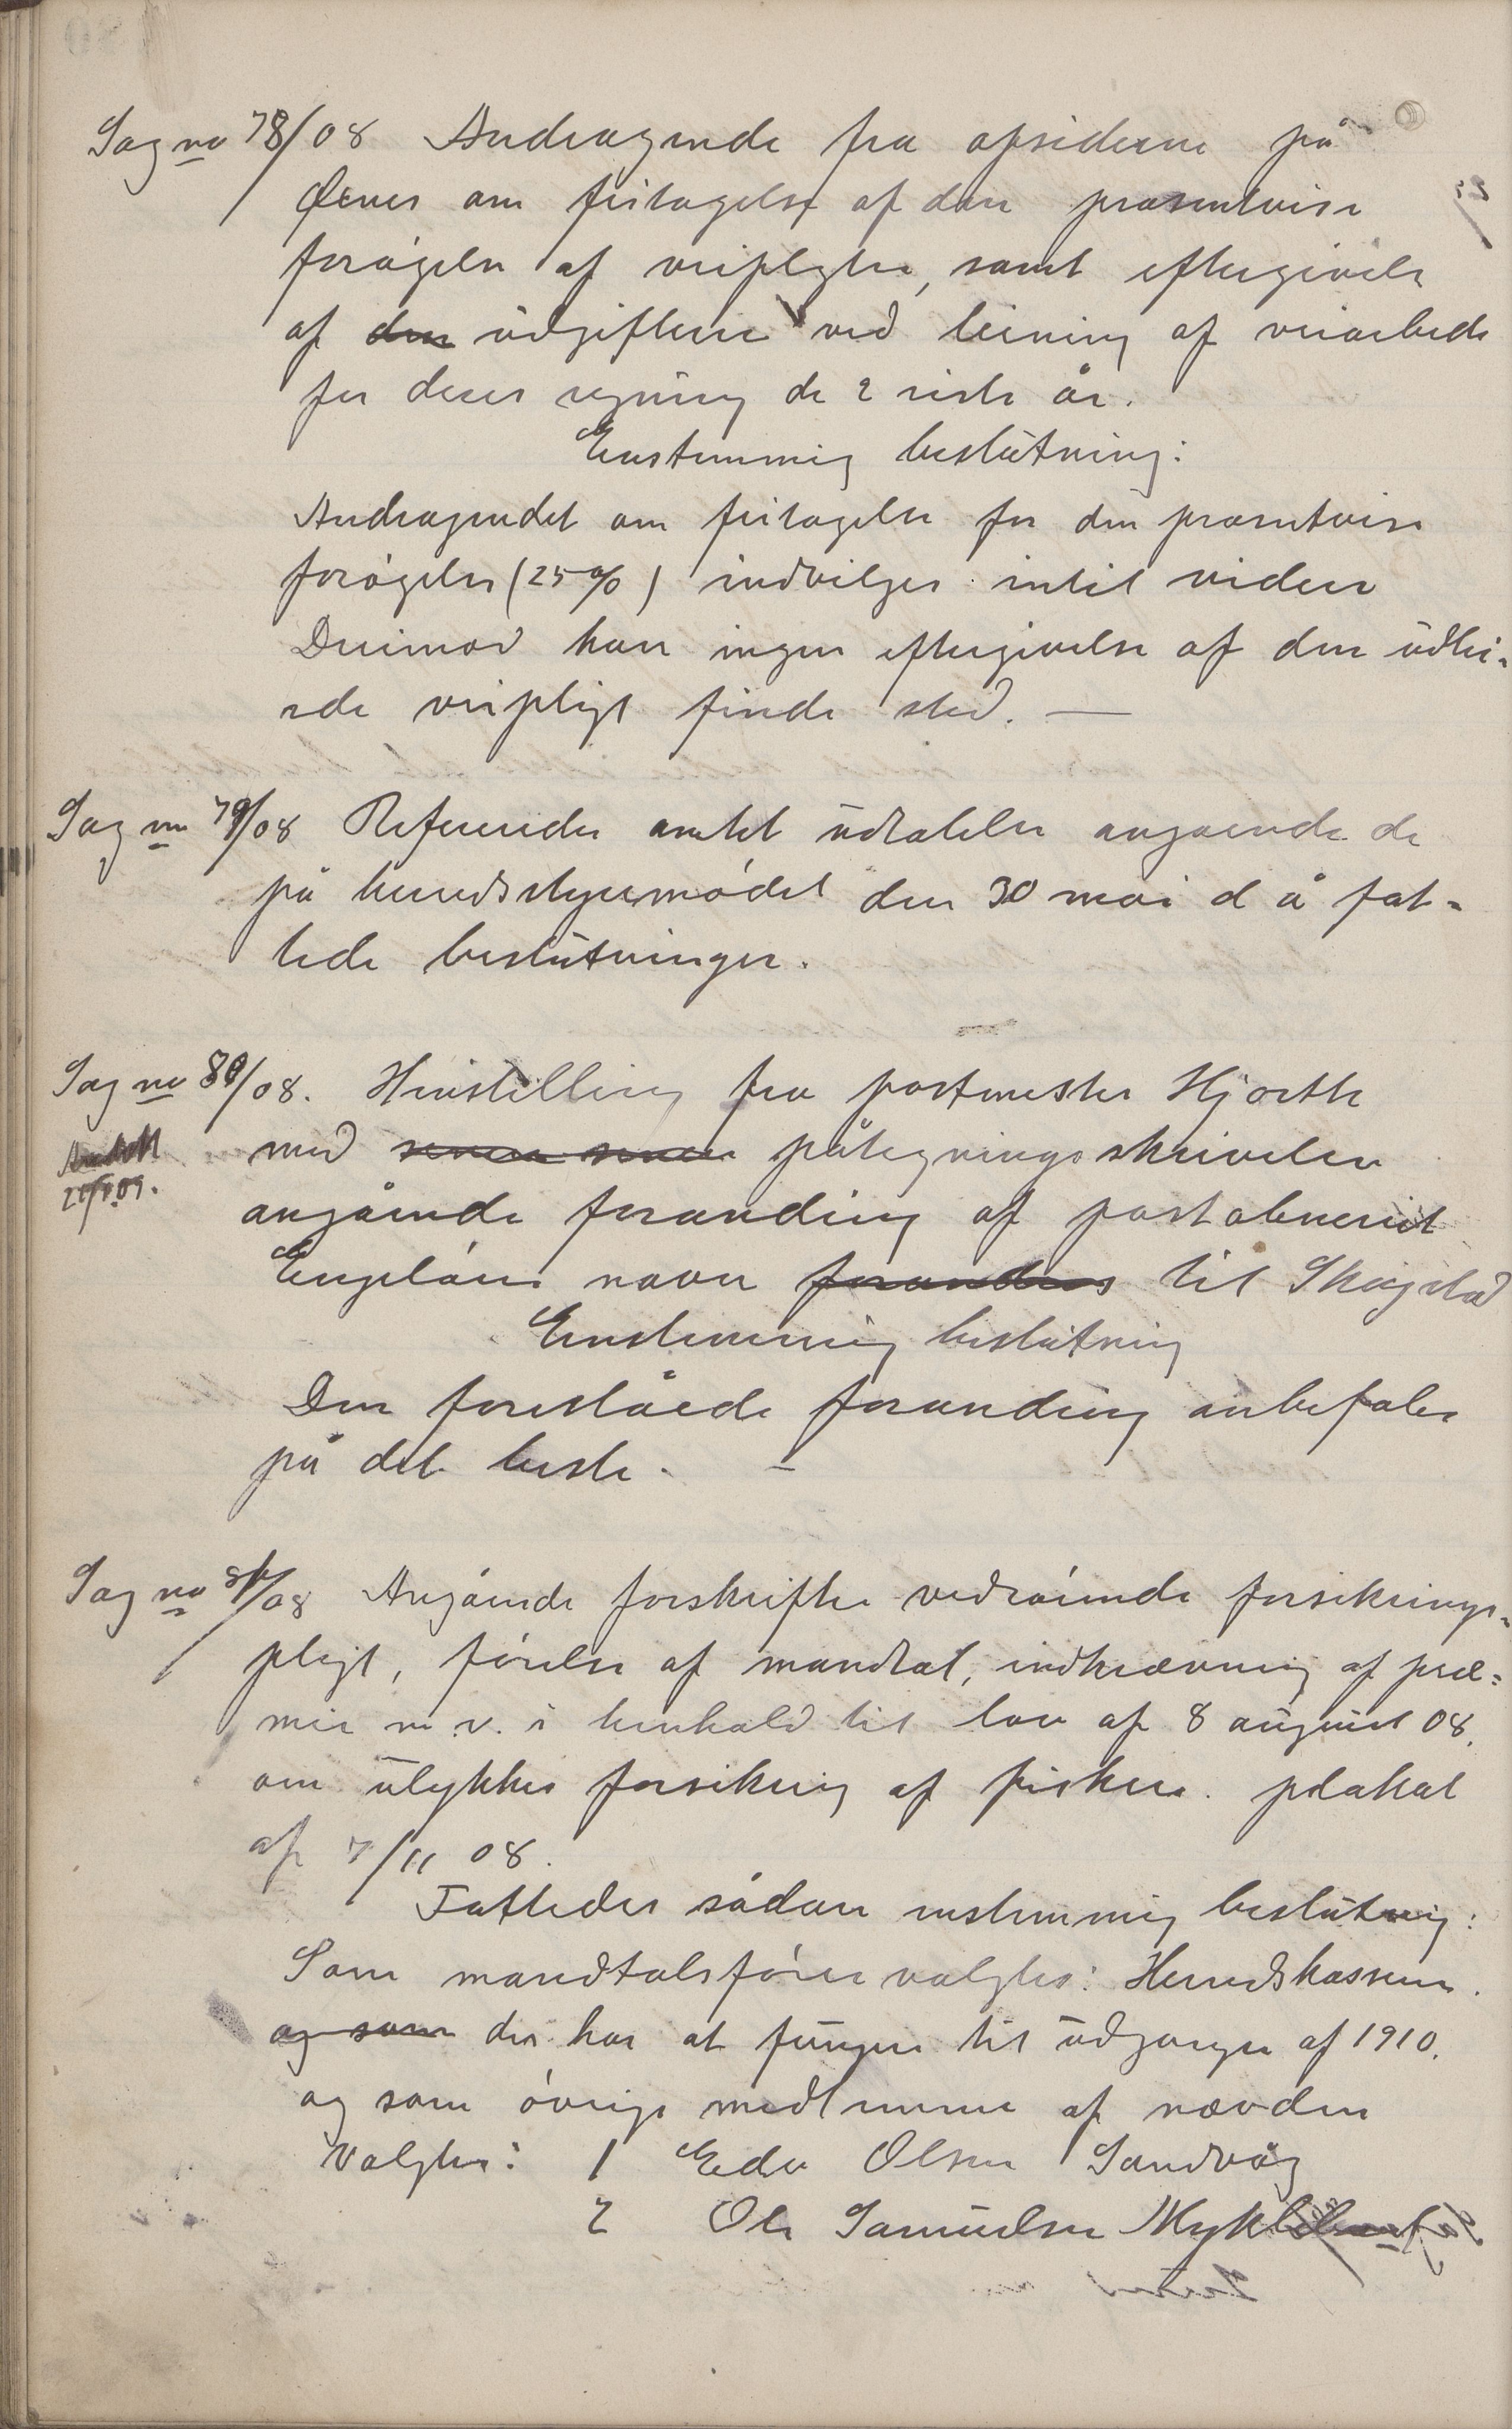 Sag no 78/08 Andragende fra opsiderne på
Øenes om fritagelse af den procentvise
forøgelse af veipligten, samt eftergivelse
af den udgifterne ved leining af veiarbeide
for deres regning de 2 siste år.
Enstemmig beslutning:
Andragendet om fritagelse for den procentvise
forøgelse (25%) indvilges intil videre
Derimod kan ingen eftergivelse af den udlei-
ede veipligt finde sted. —
Sag no 79/08 Refereredes amtets udtalelse angaaende de
på herredsstyremødet den 30 mai d å fat-
tede beslutninger.
Sag no 80/08. Henstilling fra postmester Hjorth
med påtegningsskrivelse
angående forandring af postabneriet
navn forandres til Skogstad
Enstemmig beslutning
Den foreslåede forandring anbefales
på det beste. —
Sag no 81/08 Angående forskrifter vedrørende forsikrings-
pligt, førelse af mandtal, indkrævning af præ-
mie m. v. i henhold til lov af 8 august 08.
om ulykkesforsikring af fiskere. plakat
af 7/11 08.
Fattedes sådan enstemmig beslutning:
Som mandtalsfører valgtes: Herredskasserer.
og som der har at fungere til udgangen af 1910.
og som øvrige medlemmer af nævnden
valgtes: 1 Olsen Sandvåg
2 Ole Samuelsen